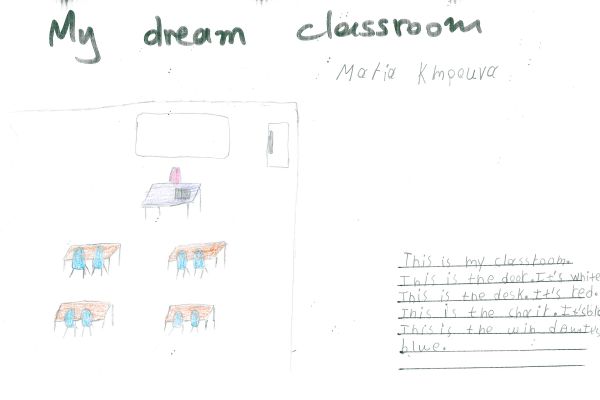 My dream classroom
Maria Kmpouva
This is my classroom.
This is the door. It's white
This is the desk. It's red.
This is the chair. It's
This is the
blue.